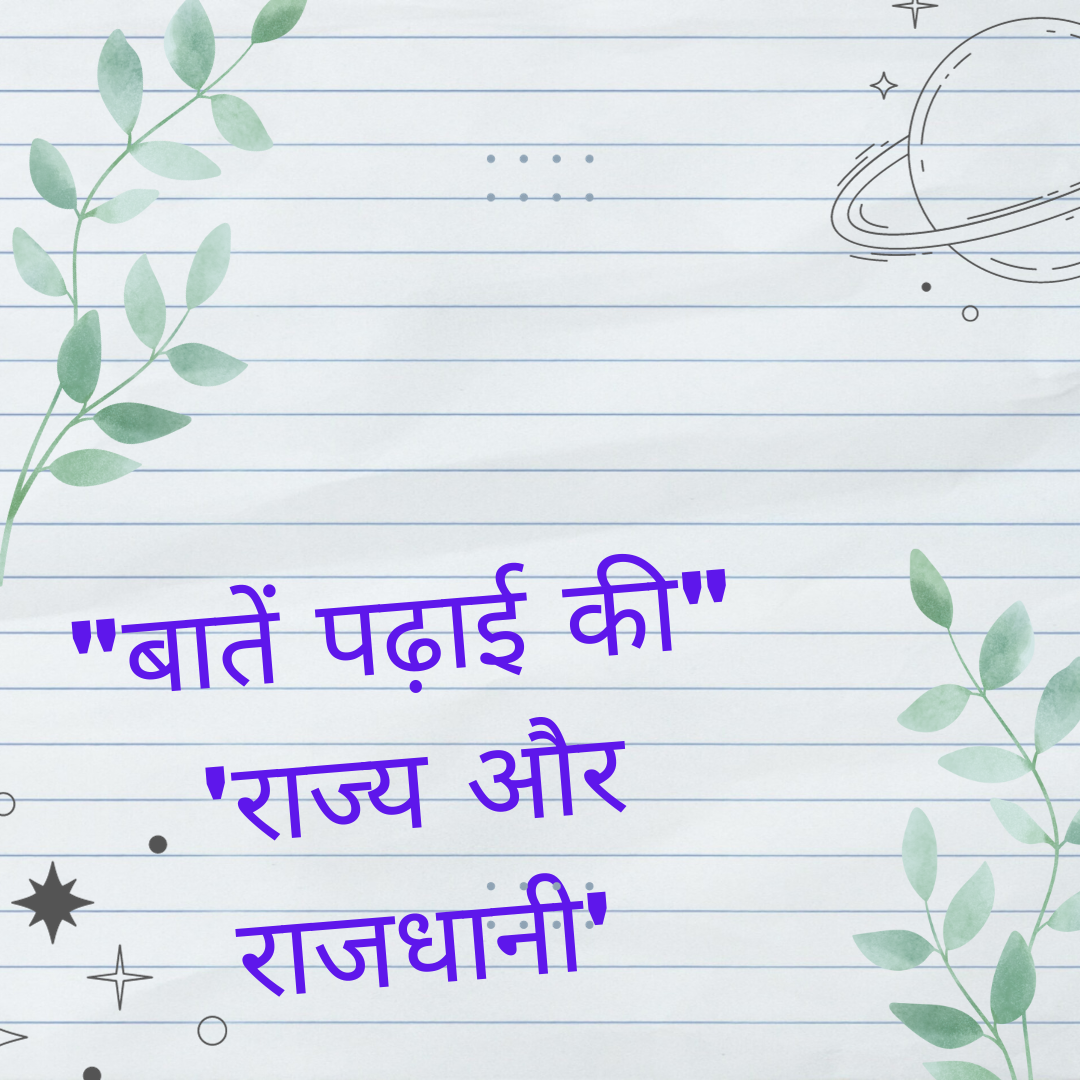 "बातें पढ़ाई की"
'राज्य और
राजधानी'